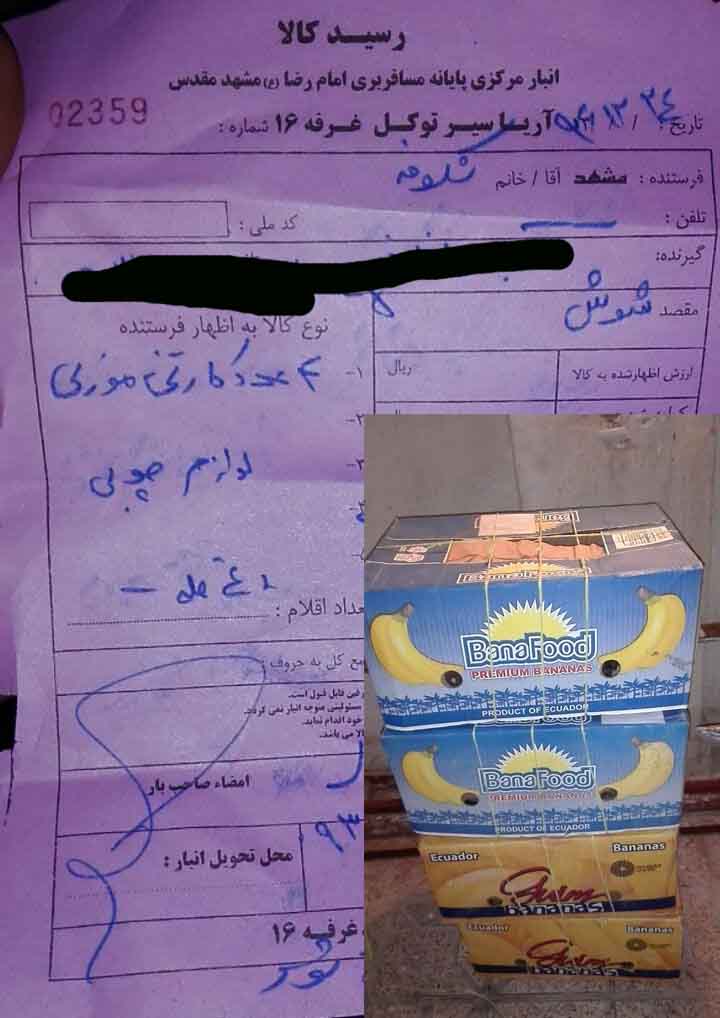 رسید کالا
انبار مرکزی پایانه مسافربری امام رضا (ع) مشهد مقدس
02359
آریا سیر توکل غرفه ۱۶ شماره :
تاریخ : ۹۳/۱۲/۲۴
فرستنده : مشهد آقا / خانم
تلفن :
کد ملی :
گیرنده:
مقصد شوش
نوع کالا به اظهار فرستنده
ارزش اظهارشده به کالا
ریال
۱- ۴ عدد کارتن موزی
۲-
۳- لوازم چوبی
تعداد اقلام :
جمع کل به حروف :
قابل قبول است.
مسئولیتی متوجه انبار نمی گردد.
خود اقدام نماید.
امضاء صاحب بار
محل تحویل انبار :
غرفه ۱۶
BanaFood
PREMIUM BANANAS
PRODUCT OF ECUADOR
BanaFood
PREMIUM BANANAS
PRODUCT OF ECUADOR
Ecuador
Bananas
bananas
Ecuador
Bananas
bananas